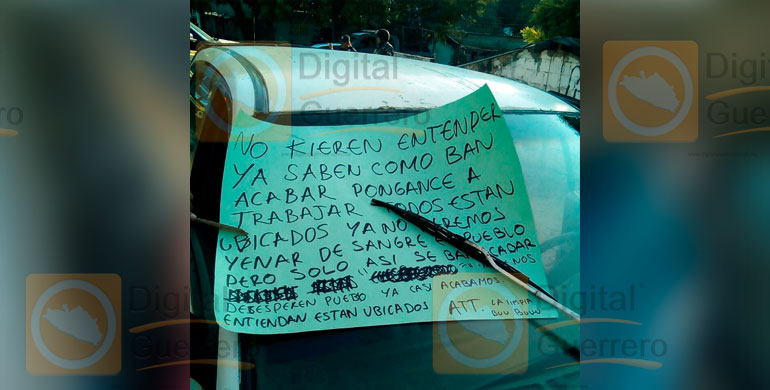 Digital
Guerrero
NO KIEREN ENTENDER
YA SABEN COMO BAN
ACABAR PONGANCE A
TRABAJAR TODOS ESTAN
UBICADOS YA NO
YENAR DE SANGRE PUEBLO
PERO SOLO ASI SE BAN
NOS
DESESPEREN PUEBLO YA CASI ACABAMOS.
ENTIENDAN ESTAN UBICADOS ATT. LA LIMPIA
BUU BUUU
Digital
Guerrero
Digital
Guerrero
Digital
Guerrero